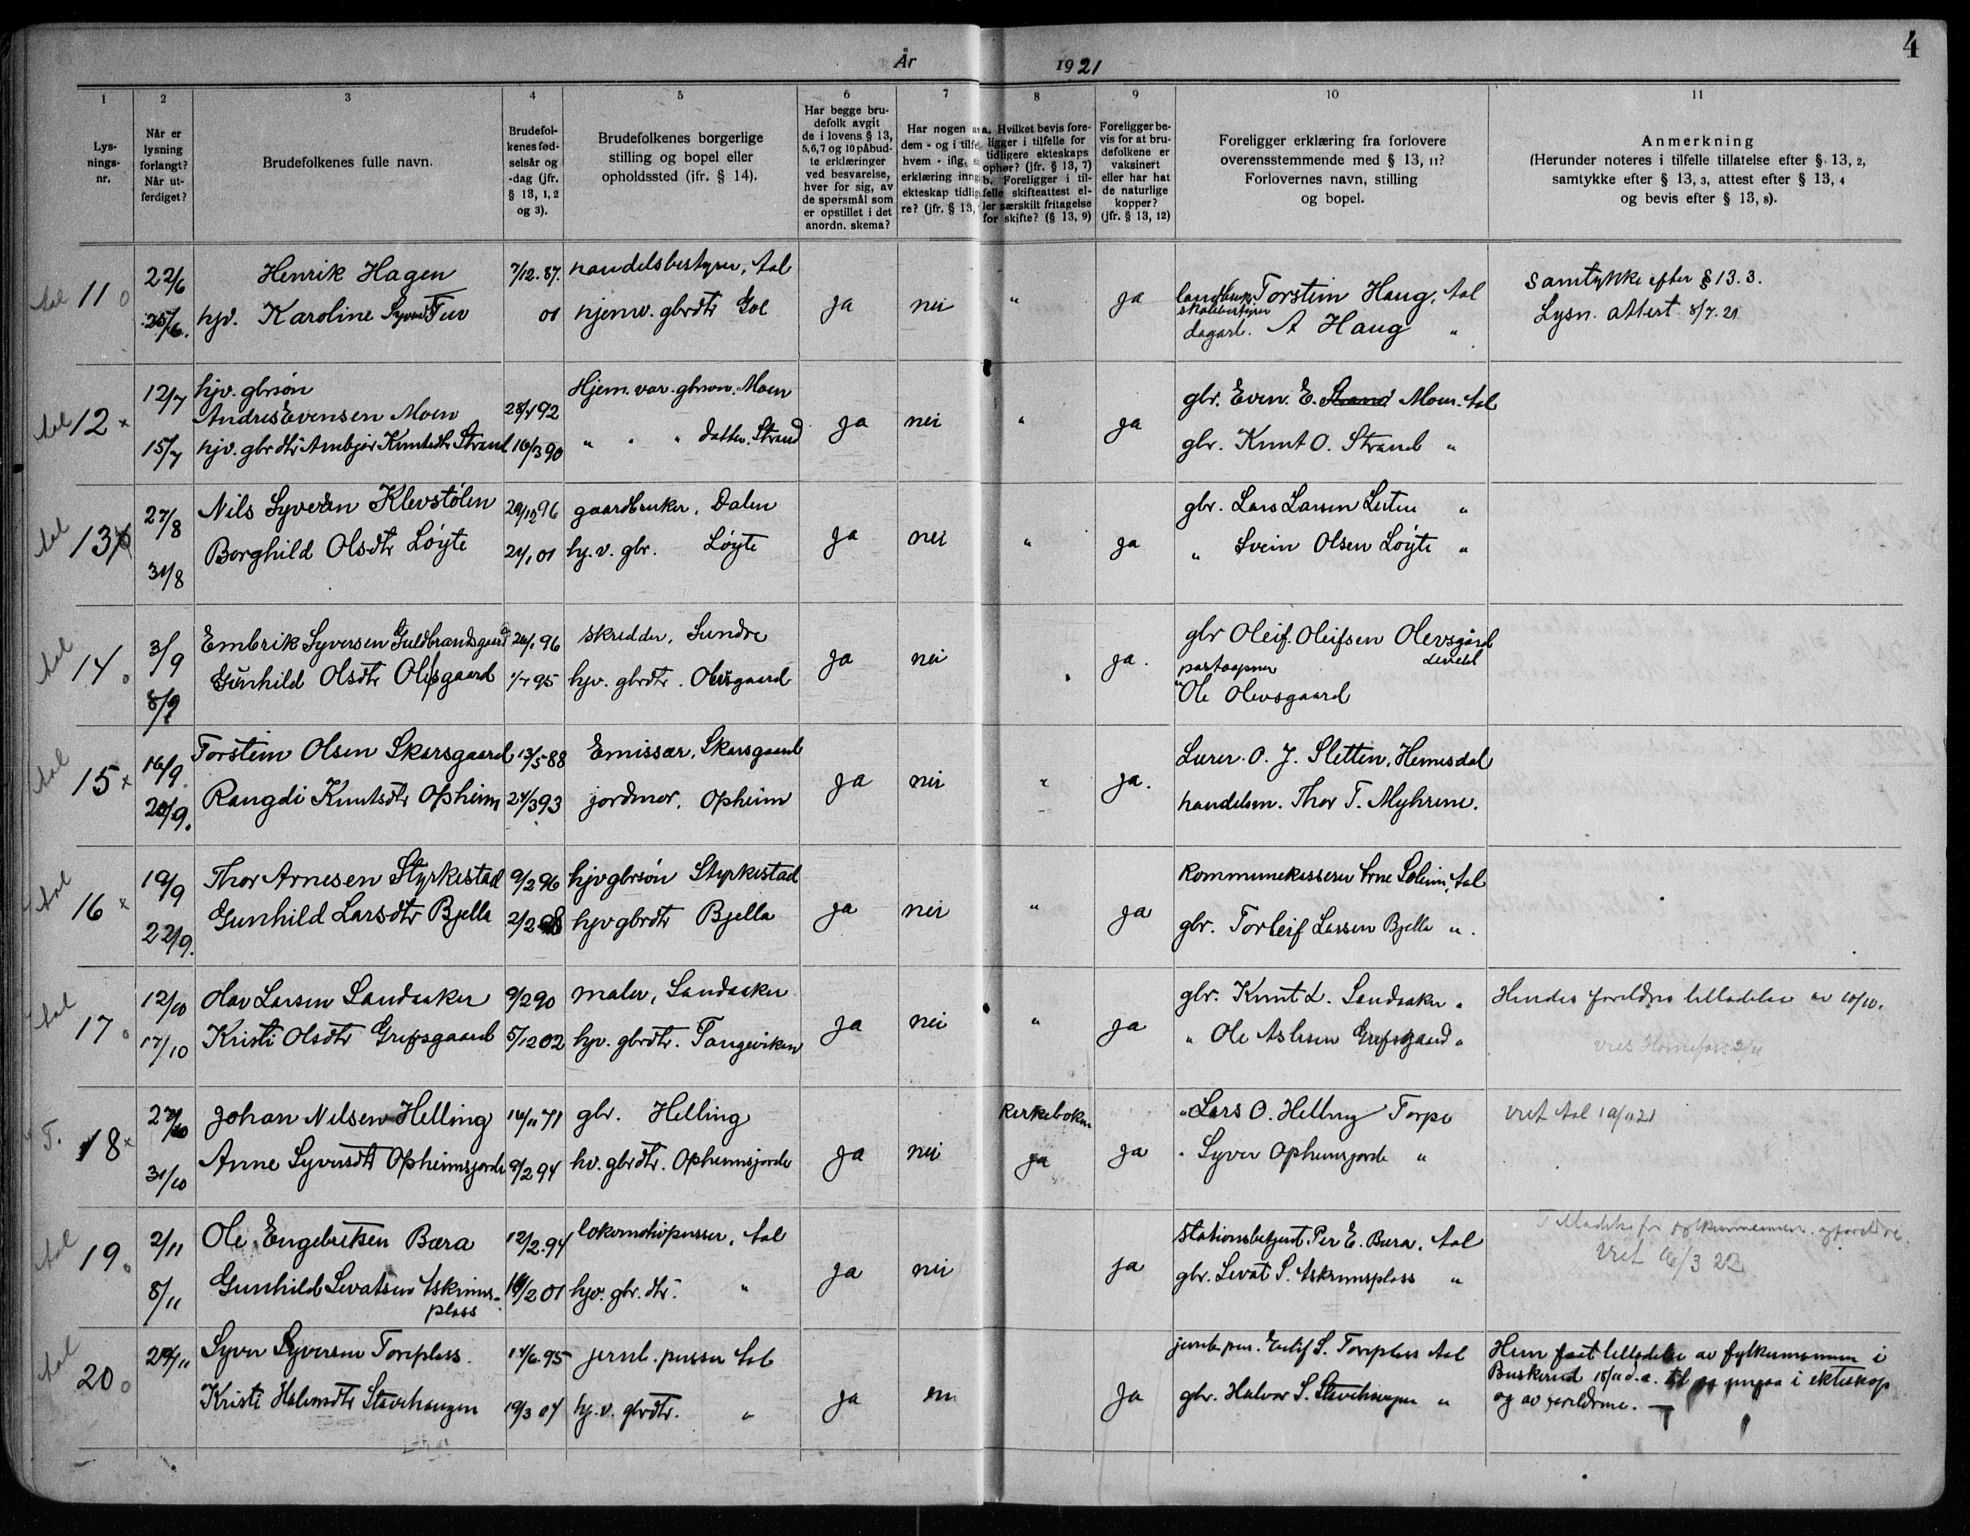 4
År 1921
1 2 3 4 5 6 7 8 9 10 11
Lys-
nings-
nr.
Når er
lysning
forlangt?
Når ut-
ferdiget?
Brudefolkenes fulle navn.
Brudefol-
kenes fød-
selsår og
-dag (jfr.
§ 13, 1, 2
og 3).
Brudefolkenes borgerlige
stilling og bopel eller
opholdssted (ifr. § 14).
Har begge bru-
defolk avgit
de i lovens § 13,
5,6,7 og 10 påbud-
te erklæringer
ved besvarelse,
hver for sig, av
de spørsmål som
er opstillet i det
anordn. skema?
Har nogen av
dem - og i tilfelle
hvem - iflg.
erklæring inng
ekteskap tidlig
re? (jfr. § 13,
a. Hvilket bevis fore-
ligger i tilfelle for
tidligere ekteskaps
ophør? (jfr. § 13, 7)
b. Foreligger i til-
felle skifteattest el-
ler særskilt fritagelse
for skifte? (§ 13, 9)
Foreligger be-
vis for at bru-
defolkene er
vaksinert
eller har hat
de naturlige
kopper?
(jfr. § 13, 12)
Foreligger erklæring fra forlovere
overensstemmende med § 13, 11?
Forlovernes navn, stilling
og bopel.
Anmerkning
(Herunder noteres i tilfelle tillatelse efter § 13, 2,
samtykke efter § 13, 3, attest efter § 13, 4
og bevis efter § 13, 8).
Aal 11 o 22/6 Henrik Hagen 7/12.87. handelsbestyrer, Aal
25/6. hjv. Karoline Syversd Tuv 01 hjemv. gbrdtr Gol ja nei " ja
Torstein Haug, Aal
skolebestyrer
dagarb. A Haug "
Samtykke efter § 13.3.
Lysn. attest 8/7.21
Aal 12 x 12/7 hjv. gbrsøn
Andres Evensen Moen 28/4 92 Hjem. var. gbrson. Moen
15/7 hjv. gbrdtr Ambjør Knutsdtr Strand 10/3 90 " " " datter. Strand ja nei " ja
gbr. Even. E. Strand Moen. Aal
gbr. Knut O. Strand "
Aal 13 27/8 Nils Syversen Klevstølen 29/12 96 gaardbruker, Dalen
31/8 Borghild Olsdtr Løyte 24/1 01 hj. v. gbr. Løyte ja nei " ja
gbr. Lars Larsen Leiten "
" Svein Olsen Løyte "
Aal 14 o 3/9 Embrik Syversen Guldbrandsgaard 24/1 96 skredder, Sundre
8/9 Gunhild Olsdtr Olsgaard 1/7 95 hjv. gbrdtr. Olsgaard ja nei ja.
gbr Oleif. Oleifsen Olevsgård
Leveld
postaapner
"Ole Olevsgaard
Aal 15 x 16/9. Torstein Olsen Skarsgaard 13/5 88 Emissær, Skarsgaard
20/9. Rangdi Knutsdtr Opheim 24/3 93 jordmor, Opheim ja nei " ja.
Lærer. O. J. Sletten, Hemsedal
handelsm. Thor T. Myhrene.
Aal 16 x 19/9 Thor Arnesen Styrkestad 9/2 96 hjv gbrsøn Styrkestad
22/9. Gunhild Larsdtr Bjella 2/2 98 hjv gbrdtr Bjella ja nei " ja
Kommunekasserer Arne Solem, Aal
gbr. Torleif Larsen Bjella ".
Aal 17 o 12/10 Olav Larsen Sandaaker 9/2 90 maler, Sandaaker
17/10 Kristi Olsdtr Grefsgaard 5/12 02 hjv. gbrdtr. Tangeviken ja nei " ja
gbr. Knut L. Sandaaker "
" Ole Aslesen Grefsgaard "
Hendes foreldres tilladelse av 10/10.
viet Hønefoss 2/11
T. 18 x 27/10 Johan Nilsen Helling 16/11 71 gbr. Helling Kirkeboken
31/10 Anne Syversdtr Opheimsjorde 9/2 94 hv. gbrdtr. Opheimsjorde ja nei ja ja
" Lars O. Helling Torpo
" Syver Opheimsjorde "
viet Aal 10/11 21
Aal 19 o 2/11 Ole Engebretsen Bæra 12/2.94 lokomotivpusser, Aal
8/11 Gunhild Sevatsen Askims-
plass 16/2 01 hjv. gbr. dtr. " ja nei ja
Stationsbetjent. Per E. Bæra, Aal
gbr. Sevat S. Askimsplass "
Tilladelse fr fylkesmannen og foreldre.
Viet 16/3 22
Aal 20 o 29/11 Syver Syversen Toreplass. 14/6.95 jernb. pusser Aal
Kristi Halvorsdtr Stavehaugen 19/3 04 hj. v. gbrdtr. " ja ja
Eilif S. Toreplass Aal
gbr. Halvor S. Stavehaugen "
Hun faat tilladelse av fylkesmannen i
Buskerud 18/11 d. a. til at inngaa i ekteskap
og av foreldrene.